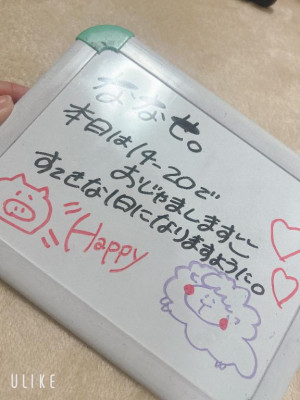 ななせ。
本日は14-20で
おじゃまします
すてきな1日になりますように。
Happy
ULIKE